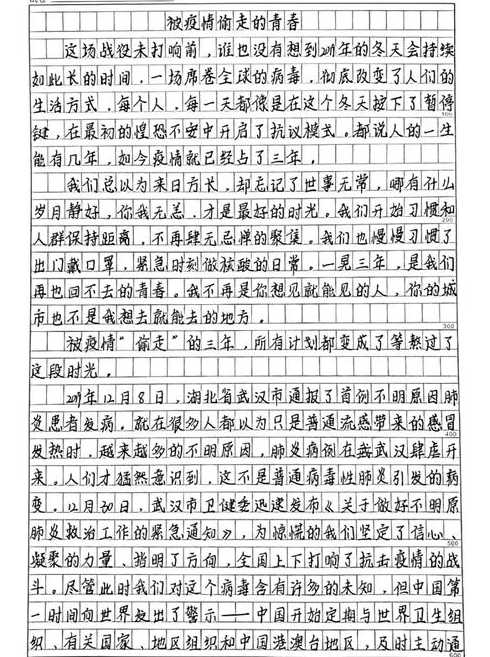 被疫情偷走的青春
这场战役未打响前，谁也没有想到2019年的冬天会持续
如此长的时间，一场席卷全球的病毒，彻底改变了人们的
生活方式，每个人，每一天都像是在这个冬天按下了暂停
100
键，在最初的惶恐不安中开启了抗议模式。都说人的一生
能有几年，如今疫情就已经占了三年。
我们总以为来日方长，却忘记了世事无常，哪有什么
岁月静好，你我无恙，才是最好的时光。我们开始习惯和
200
人群保持距离，不再肆无忌惮的聚集。我们也慢慢习惯了
出门戴口罩，紧急时刻做核酸的日常。一晃三年，是我们
再也回不去的青春。我不再是你想见就能见的人，你的城
市也不是我想去就能去的地方。
300
被疫情“偷走”的三年，所有计划都变成了等熬过了
这段时光。
2019年12月8日，湖北省武汉市通报了首例不明原因肺
炎患者发病。就在很多人都以为只是普通流感带来的感冒
400
发热时，越来越多的不明原因，肺炎病例在武汉肆虐开
来。人们才猛然意识到，这不是普通病毒性肺炎引发的病
变。12月30日，武汉市卫健委迅速发布《关于做好不明原
肺炎救治工作的紧急通知》，为惊慌的我们坚定了信心、
500
凝聚的力量、指明了方向，全国上下打响了抗击疫情的战
斗。尽管此时我们对这个病毒含有许多的未知，但中国第
一时间向世界发出了警示——中国开始定期与世界卫生组
织、有关国家、地区组织和中国港澳台地区，及时主动通
600